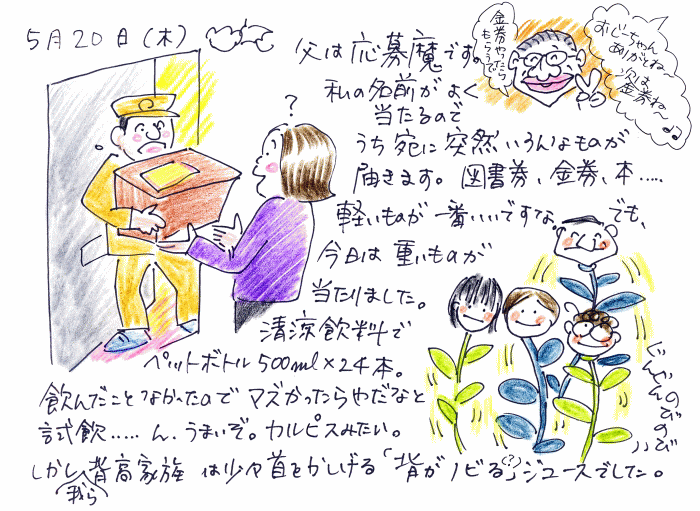 5月20日(木)
父は応募魔です。
私の名前がよく
当たるので
うち宛に突然いろんなものが
届きます。図書券、金券、本.....
軽いものが一番いいですな。でも、
今日は重いものが
当たりました。
清涼飲料で
ペットボトル500ml×24本。
飲んだことなかったのでマズかったらやだなと
試飲.....ん、うまいぞ。カルピスみたい。
しかし我ら背高家族は少々首をかしげる「背がノビる(?)」ジュースでした。
金券やったら
もらうで
おじーちゃん
ありがとね〜
次は
金券ね〜♫
?
ぐんぐん
のびのび